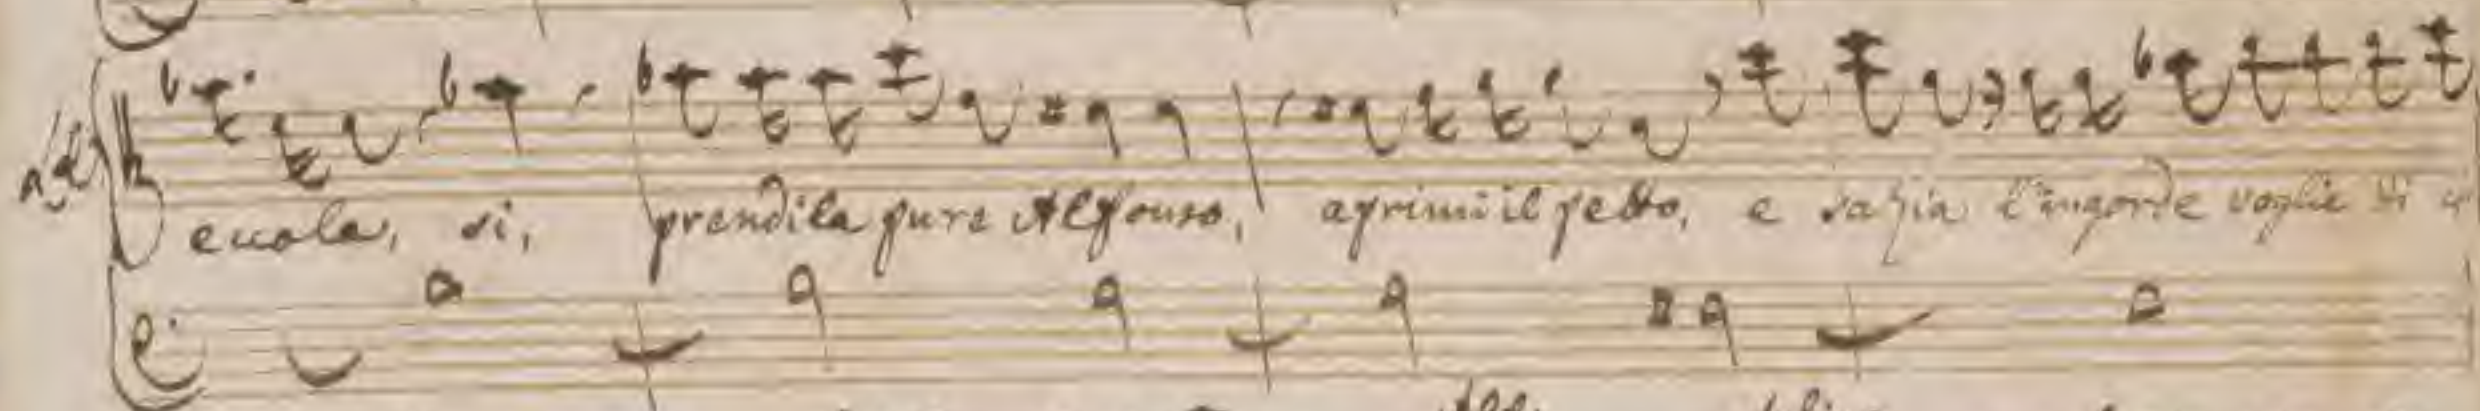 eccola, si, prendila pure Alfonso, aprimi il petto, e sazia l'ingorde voglie di